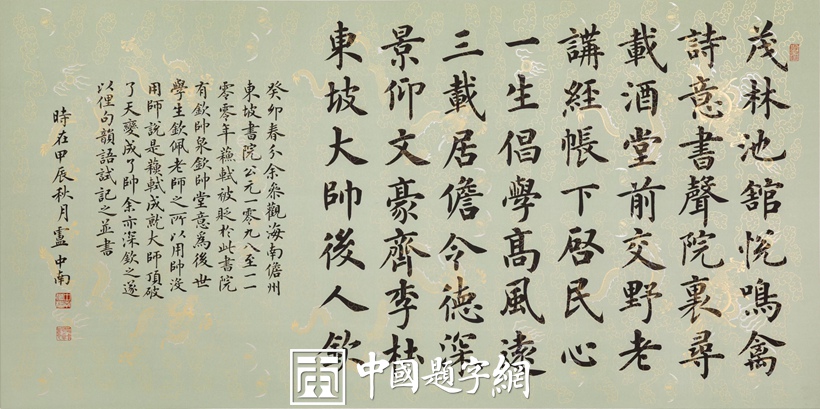 茂林池館悅鳴禽
詩意書聲院裏尋
載酒堂前交野老
講經帳下啓民心
一生倡學高風遠
三載居儋令德深
景仰文豪齊李杜
東坡大帥後人欽
癸卯春分余參觀海南儋州
東坡書院公元一零九八至一一
零零年蘇軾被貶於此書院
有欽帥泉欽帥堂意爲後世
學生欽佩老師之所以用帥沒
用師說是蘇軾成就大師頂破
了天變成了帥余亦深欽之遂
以俚句韻語試記之並書
時在甲辰秋月盧中南
中國題字網